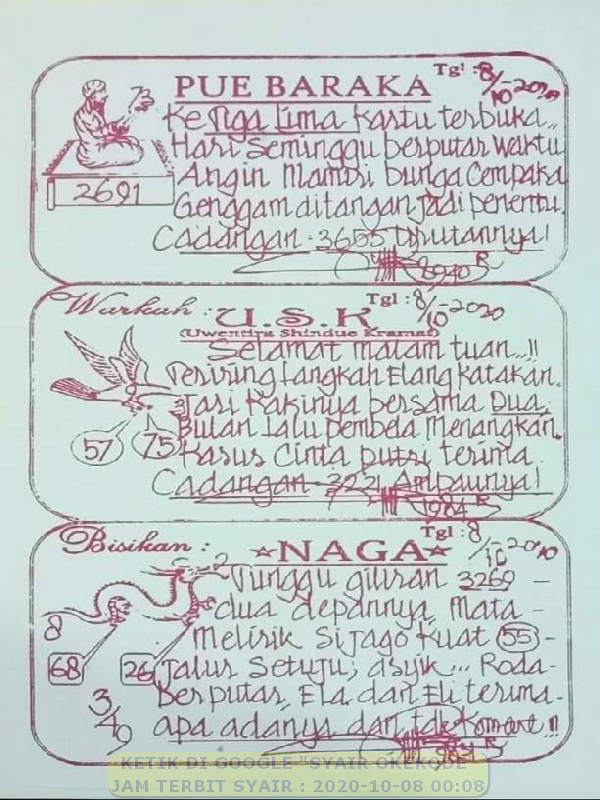 PUE BARAKA
Tgl : 8/10-2020
Ke Tiga Lima Kartu terbuka..
Hari Seminggu berputar Waktu
Angin Mamiri bunga Cempaka
Genggam ditangan Jadi penentu.
Cadangan. 3655 Diputannya!
2691
8940
Warkah : U.S.K
(Uwentira Shindue Kramat)
Tgl : 8/10-2020
Selamat malam tuan...!!
Periring langkah Elang katakan.
Jari Kakinya bersama Dua.
Bulan Lalu pembela Menangkan.
Kasus Cinta putri terima
Cadangan-3221 Ampaunya!
57
75
1984
Bisikan : ★NAGA★
Tgl : 8/10-2020
Tunggu giliran 3269 -
dua depannya, Mata -
Melirik Sijago Kuat 55 -
Jalur Setuju; asyik ... Roda-
Berputar, Ela dan Eli terima-
apa adanya dan tdk Komart !!!
8
68
26
3/40
KETIK DI GOOGLE "SYAIR OKEKODE"
JAM TERBIT SYAIR : 2020-10-08 00:08